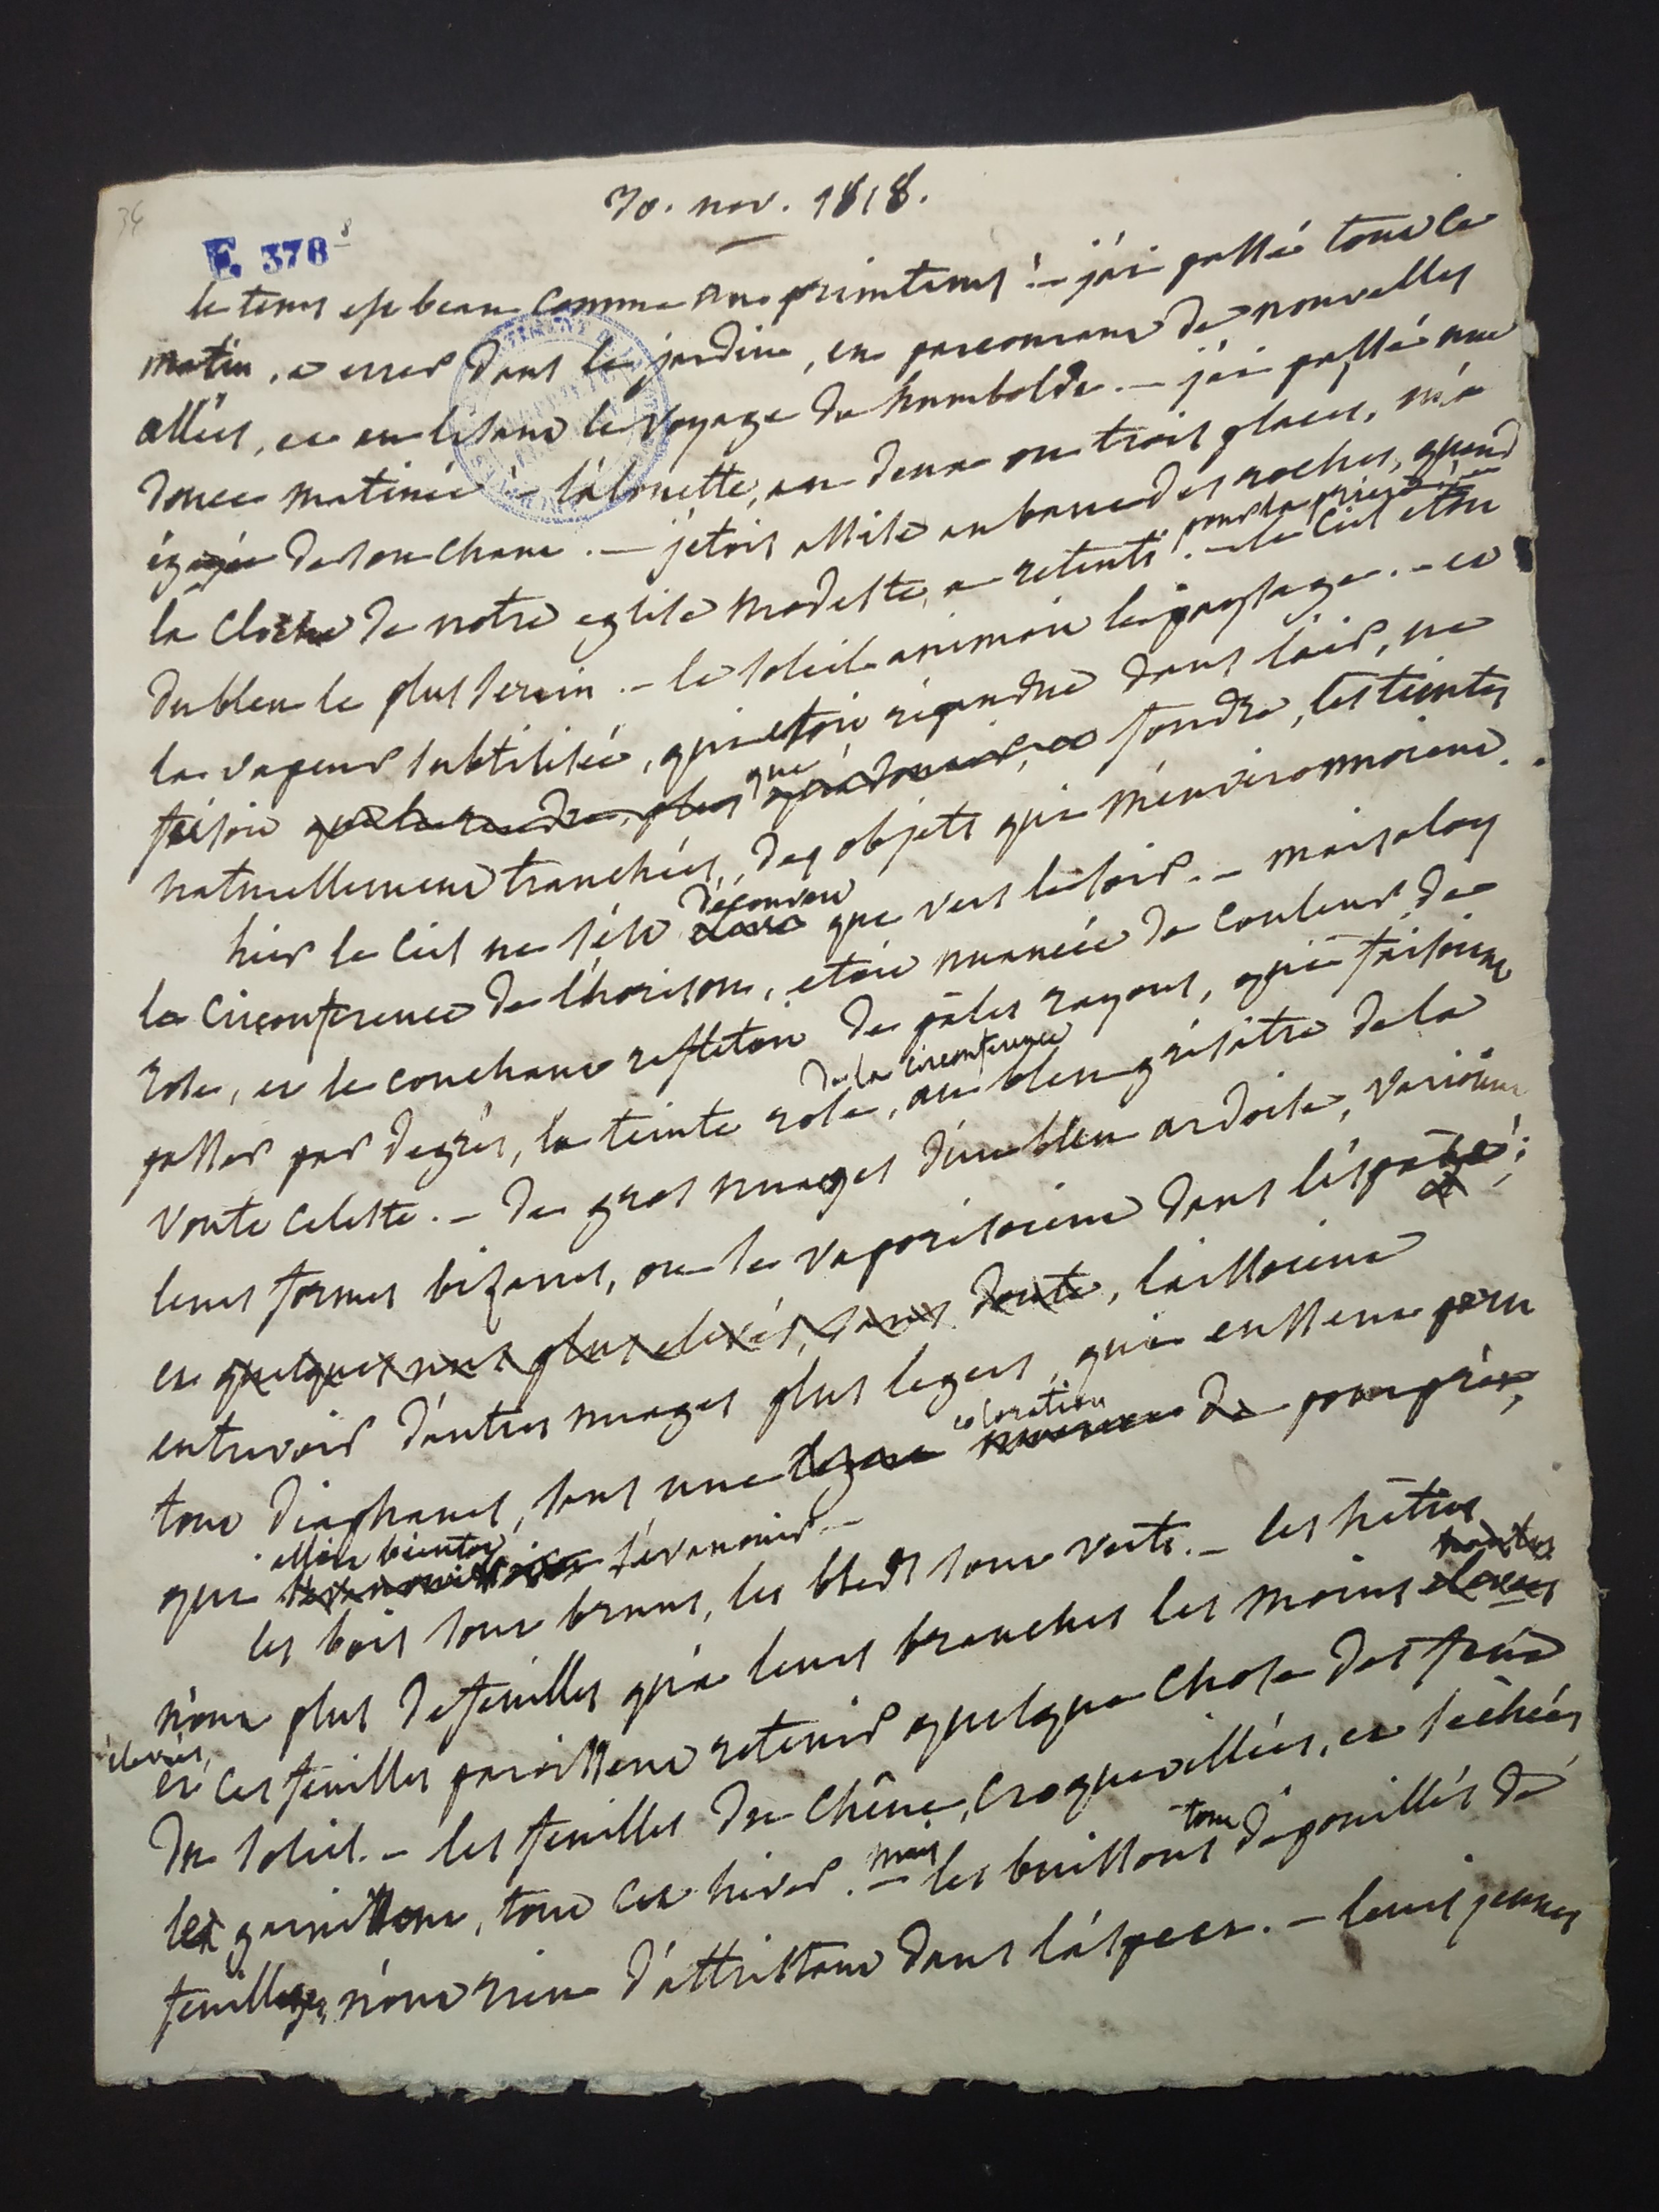 34
30. nov. 1818.
E. 378 8
le tems est beau comme au printems ! – j'ai passé tout le
matin, a errer dans le jardin, en parcourant de nouvelles
allées, et en lisant le voyage de humbolde. – j'ai passé une
douce matinée – l'alouette, en deux ou trois places, m'a
égayée de son chant. – j'etois assise au banc des roches, quand
la cloche de notre eglise modeste, a retenti pour la prière. – le ciel etoit
du bleu le plus serein. – le soleil animoit le paysage. – et
la vapeur subtilisée, qui etoit répandue dans l'air, ne
faisoit que fondre, les teintes
naturellement tranchées, des objets qui m'environnoient.
hier le ciel ne s'est découvert que vers le soir. – mais alors
la circonference de l'horison, etoit nuancée de couleur de
rose, et le couchant reflétoit de pâles rayons, qui faisoient
passer par degrés, la teinte rose de la circonference, au bleu grisâtre de la
voute celeste. – de gros nuages d'un bleu ardoise, varioient
leurs formes bizarres, ou se vaporisoient dans l'éspace ;
et quelques uns plus elevés, sans doute, laissoient
entrevoir d'autres nuages plus legers, qui eussent paru
tout diaphanes, sans une legere coloration de pourpre,
qui alloit bientot s'evanouir. –
les bois sont bruns, les bleds sont verts. – les hêtres
n'ont plus de feuilles qu'a leurs branches les moins hautes
elevées, et ces feuilles paroissent retenir quelque chose des feux
du soleil. – les feuilles du chêne, croquevillées, et séchées
les garnissent, tout cet hiver. – mais les buissons tout dépouillés de
feuillages, n'ont rien d'attristant dans l'aspect. – leurs jeunes